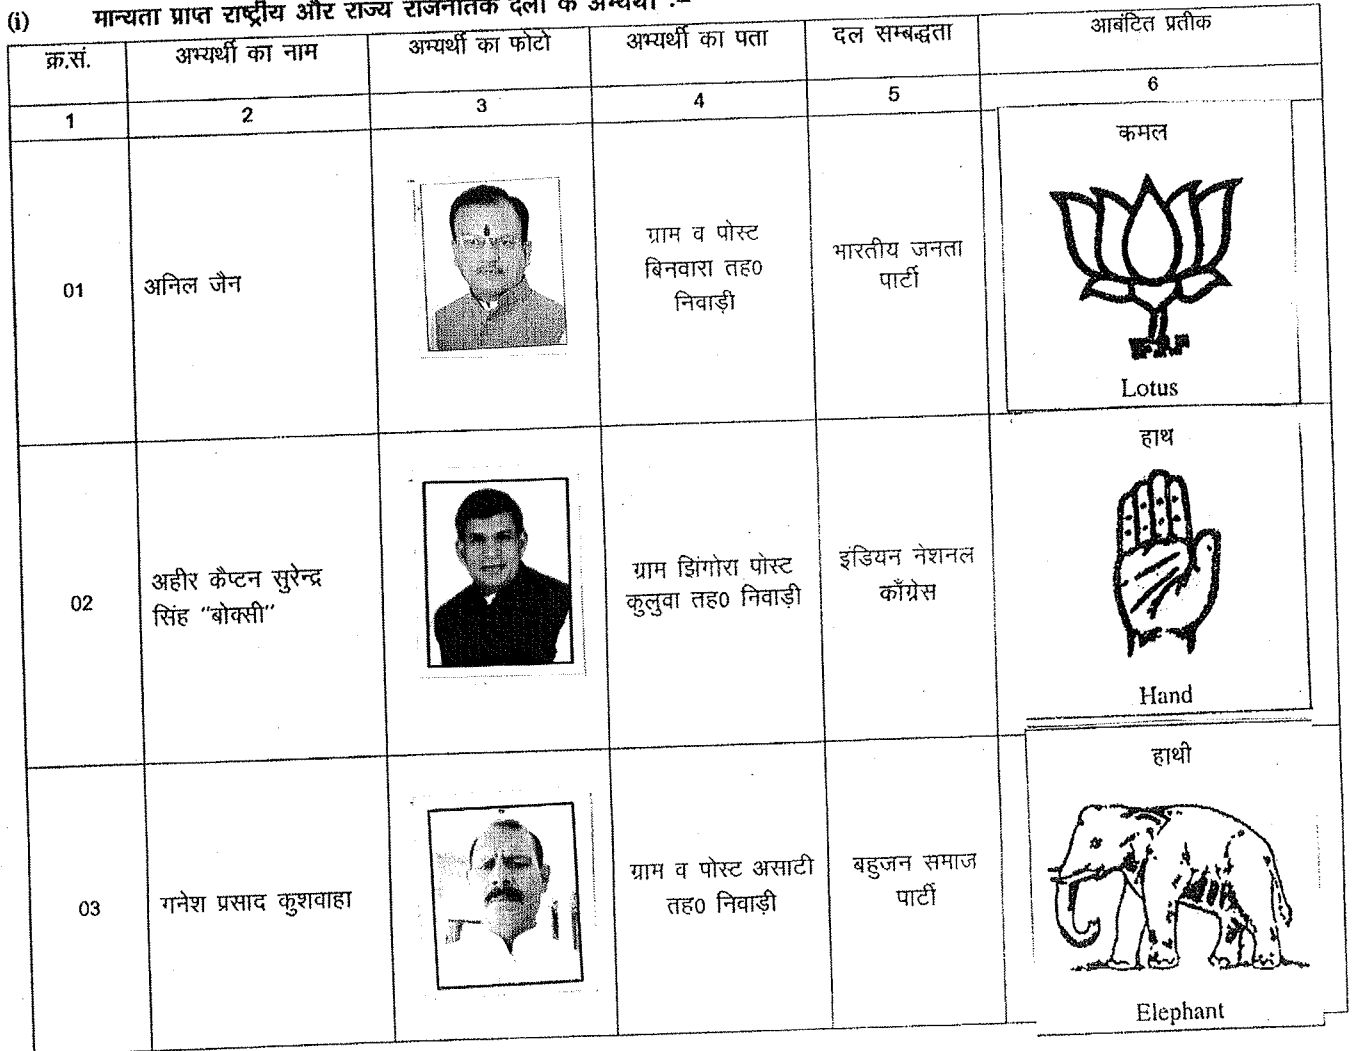 (i) मान्यता प्राप्त राष्ट्रीय और राज्य राजनैतिक दलों के अभ्यर्थी :–
क्र.सं. अभ्यर्थी का नाम अभ्यर्थी का फोटो अभ्यर्थी का पता दल सम्बद्धता आबंटित प्रतीक
1 2 3 4 5 6
कमल
01 अनिल जैन
ग्राम व पोस्ट
बिनवारा तह0
निवाड़ी
भारतीय जनता
पार्टी
Lotus
हाथ
02
अहीर कैप्टन सुरेन्द्र
सिंह "बोक्सी"
ग्राम झिंगोरा पोस्ट
कुलुवा तह0 निवाड़ी
इंडियन नेशनल
काँग्रेस
Hand
हाथी
03 गनेश प्रसाद कुशवाहा
ग्राम व पोस्ट असाटी
तह0 निवाड़ी
बहुजन समाज
पार्टी
Elephant